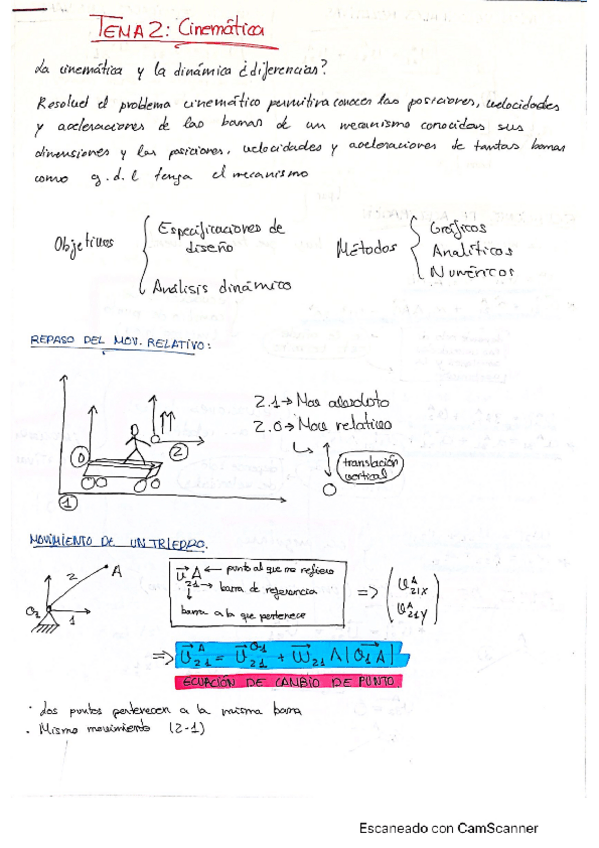 TEMA 2: Cinemática
La cinemática y la dinámica ¿diferencias?
Resolud el problema cinemático permitiva conocer las posiciones, velocidades
y aceleraciones de las barras de un mecanismo conocidas sus
dimensiones y las posiciones, velocidades y aceleraciones de tantas barras
como g.d.l tenga el mecanismo
Objetivos
Especificaciones de
diseño
Análisis dinámico
Métodos
Gráficos
Analíticos
Numéricos
REPASO DEL MOV. RELATIVO:
2.1 → Mov absoluto
2.0 → Mov relativo
translación
vertical
0
2
1
MOVIMIENTO DE UN TRIEDRO.
A
2
O2
1
U A 21 ← punto al que me refiero
→ barra de referencia
barra a la que pertenece
=> (U A 21X
U A 21Y)
=> U A 21 = U O1 21 + ω21 ∧ |O1A|
ECUACIÓN DE CAMBIO DE PUNTO.
· Los puntos pertenecen a la misma barra
· Mismo movimiento (2-1)
Escaneado con CamScanner